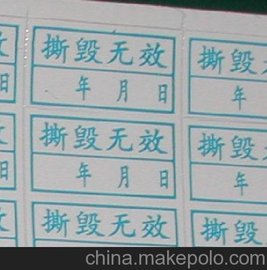 撕毁无效 撕毁
年 月 日 年
撕毁无效 撕毁
年 月 日 年
撕毁无效 撕毁
china.makepolo.com